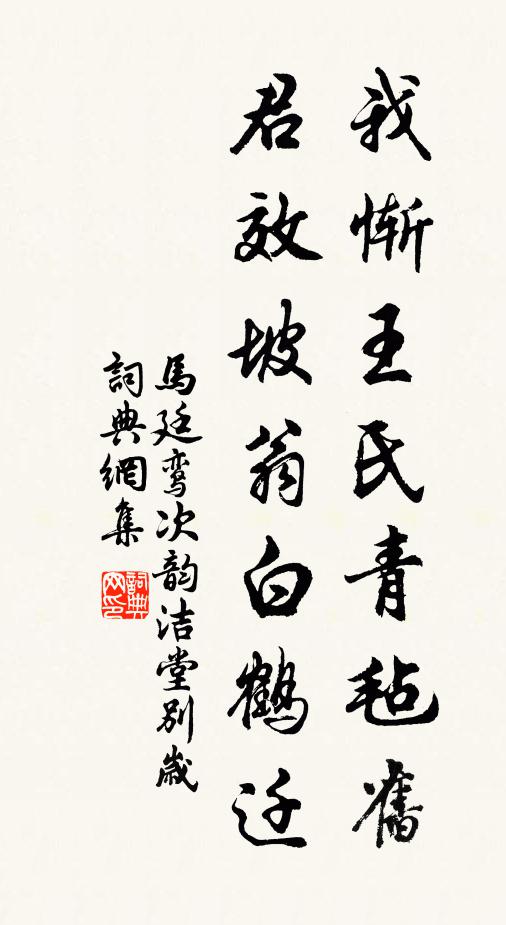 我惭王氏青毡舊
君效坡翁白鶴迁
馬廷鸾次韵洁堂别歲
詞典網集
詞典網印